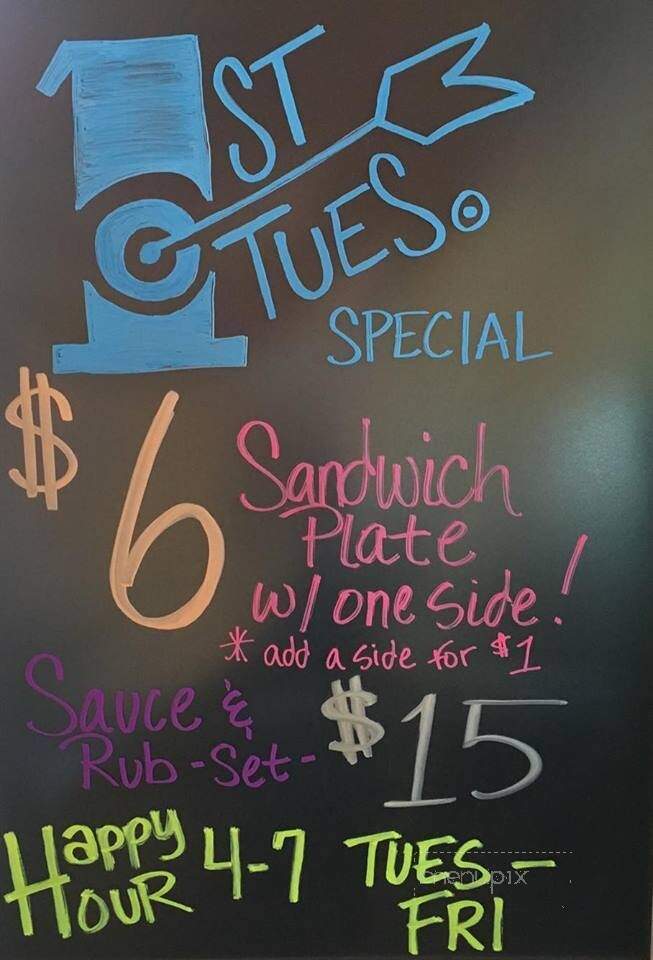 1ST
TUES.
SPECIAL
$6 Sandwich
Plate
w/ one side!
* add a side for $1
Sauce & $15
Rub -Set-
Happy 4-7 TUES -
HOUR FRI
menupix